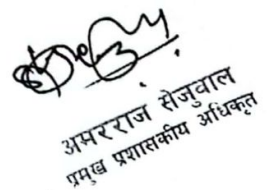 अमरराज सेजुवाल
प्रमुख प्रशासकीय अधिकृत